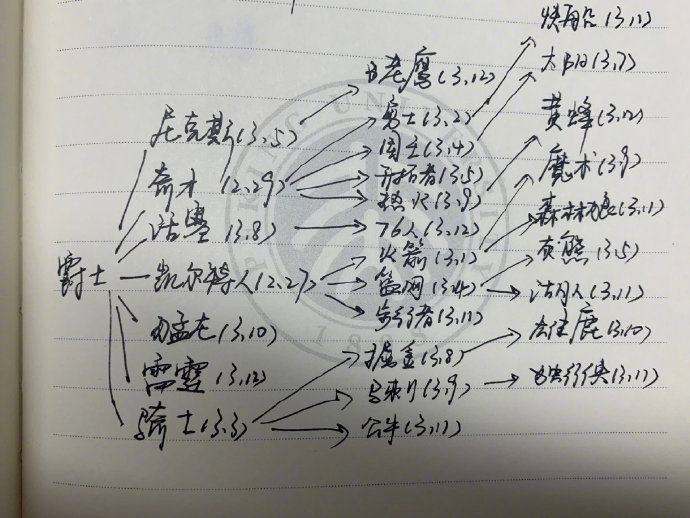 爵士
尼克斯(3,5)
奇才(2,29)
活塞(3,8)
凯尔特人(2,27)
猛龙(3,10)
雷霆(3,12)
骑士(3,3)
老鹰(3,12)
勇士(3,2)
国王(3,4)
开拓者(3,5)
热火(3,9)
76人(3,12)
火箭(3,1)
篮网(3,4)
步行者(3,11)
掘金(3,8)
马刺(3,9)
公牛(3,11)
快船(3,11)
太阳(3,7)
黄蜂(3,12)
魔术(3,9)
森林狼(3,11)
灰熊(3,5)
湖人(3,11)
雄鹿(3,10)
独行侠(3,11)
PEKING UNIVERSITY